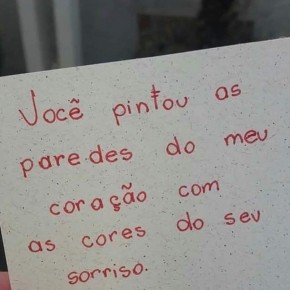 Você pintou as
paredes do meu
coração com
as cores do seu
sorriso.